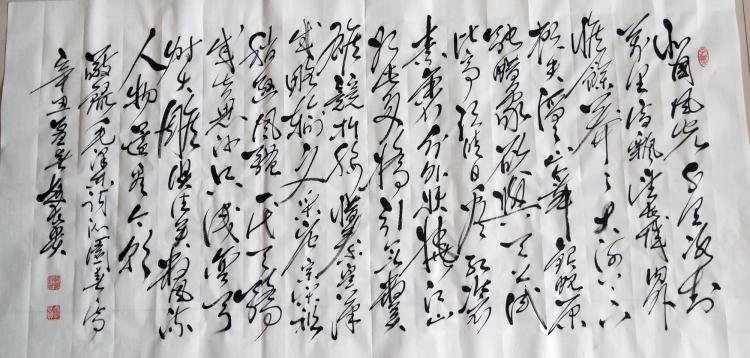 北国风光千里冰封
万里雪飘望长城内外
惟餘莽々大河上下
顿失滔々山舞银蛇原
驰蜡象欲与天公试
比高须晴日看红装
素裹分外妖娆江山
如此多娇引无数英
雄竞折腰惜秦皇汉
武略输文采唐宗宋祖
稍逊风骚一代天骄
成吉思汗只识弯弓
射大雕俱往矣数风流
人物还看今朝
敬录毛泽东词沁园春雪
辛丑孟春